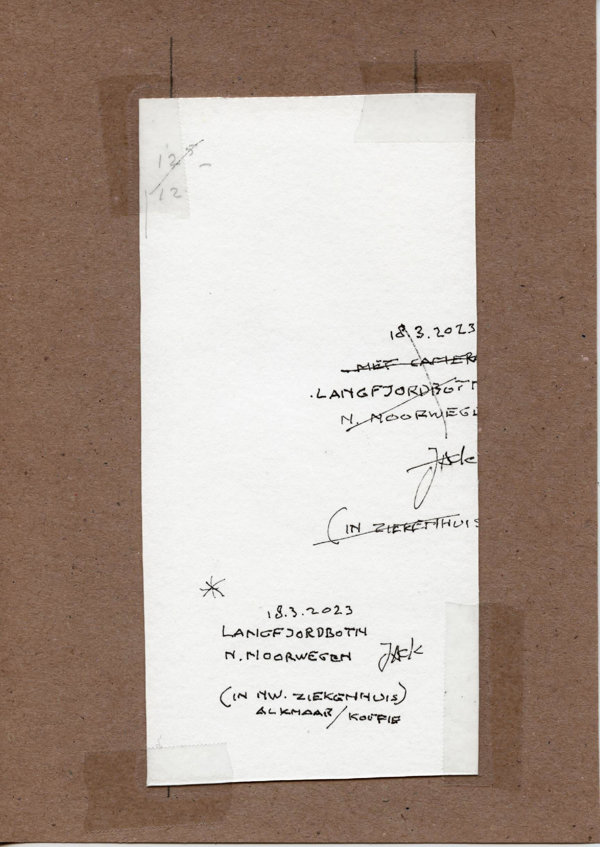 125
12
18.3.2023
MET CAMER
LANGFJORDBOTN
N. NOORWEGE
JAck
(IN ZIEKENHUIS
*
18.3.2023
LANGFJORDBOTN
N. NOORWEGEN JAck
(IN NW. ZIEKENHUIS)
ALKMAAR/KOFFIE